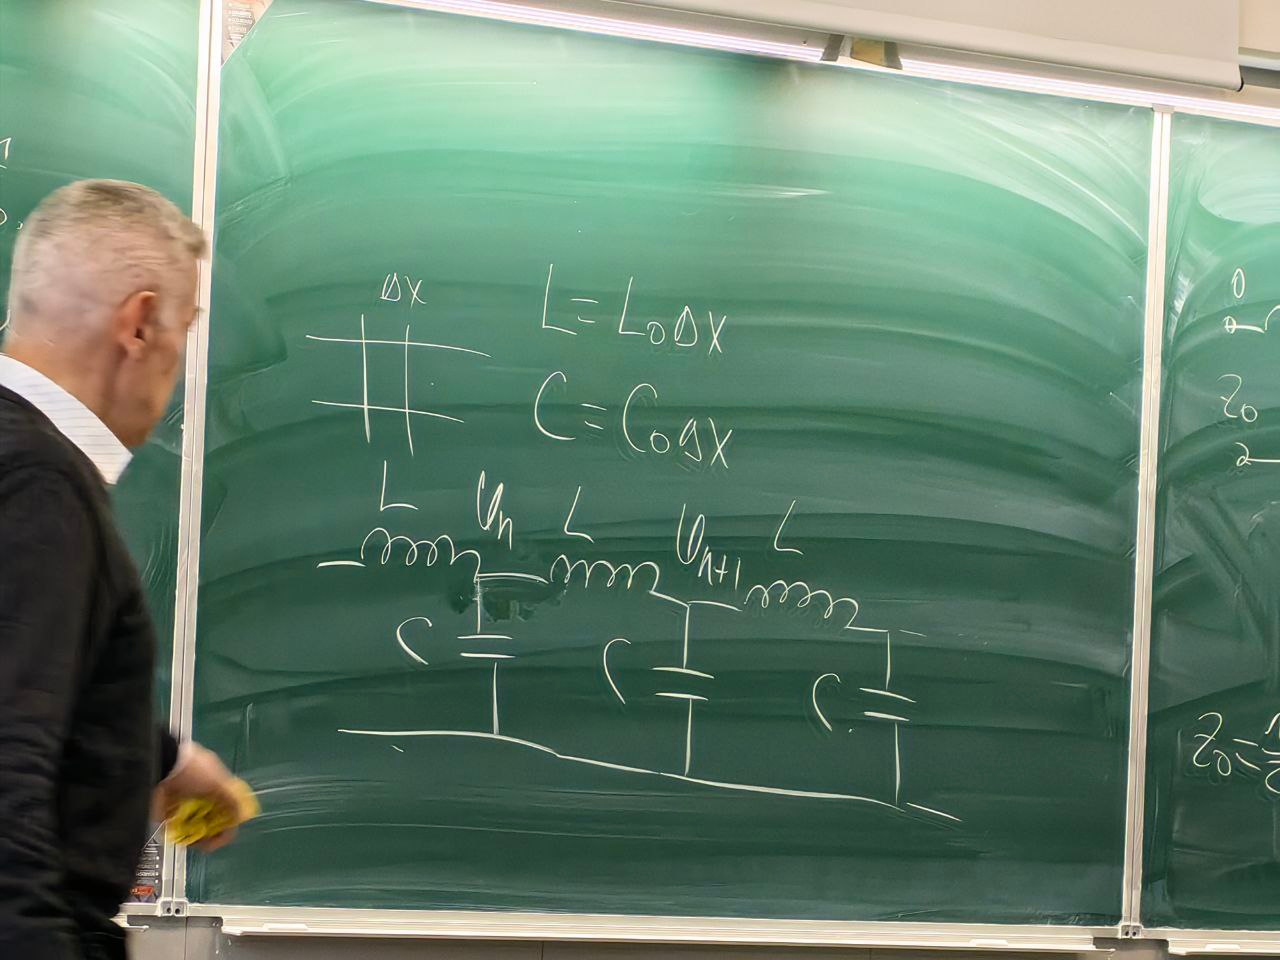 Δx
L = L₀Δx
C = C₀Δx
L φₙ L φₙ₊₁ L
C C C
0
Z₀
2
Z₀ =